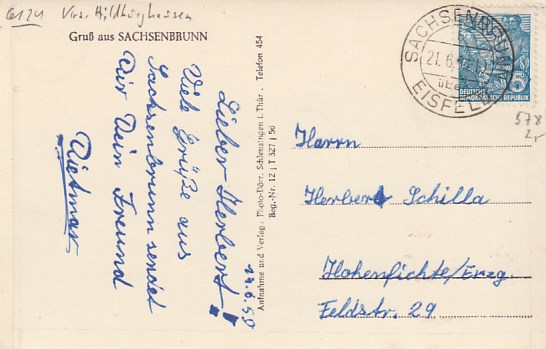 6121 Krs. Hildburghausen
Gruß aus SACHSENBRUNN
Telefon 454
Aufnahme und Verlag: Photo-Dörr, Schleusingen i. Thür.
Beg.-Nr. 12 | T 327 | 56
17.6.59
Lieber Herbert!
Viele Grüße aus
Sachsenbrunn sendet
Dir Dein Freund
Dietmar
SACHSENBRUNN
21.6.
über
EISFELD
DEUTSCHE
DEMOKRATISCHE REPUBLIK
5
578
2,-
Herrn
Herbert Schilla
Hohenfichte/Erzg.
Feldstr. 29